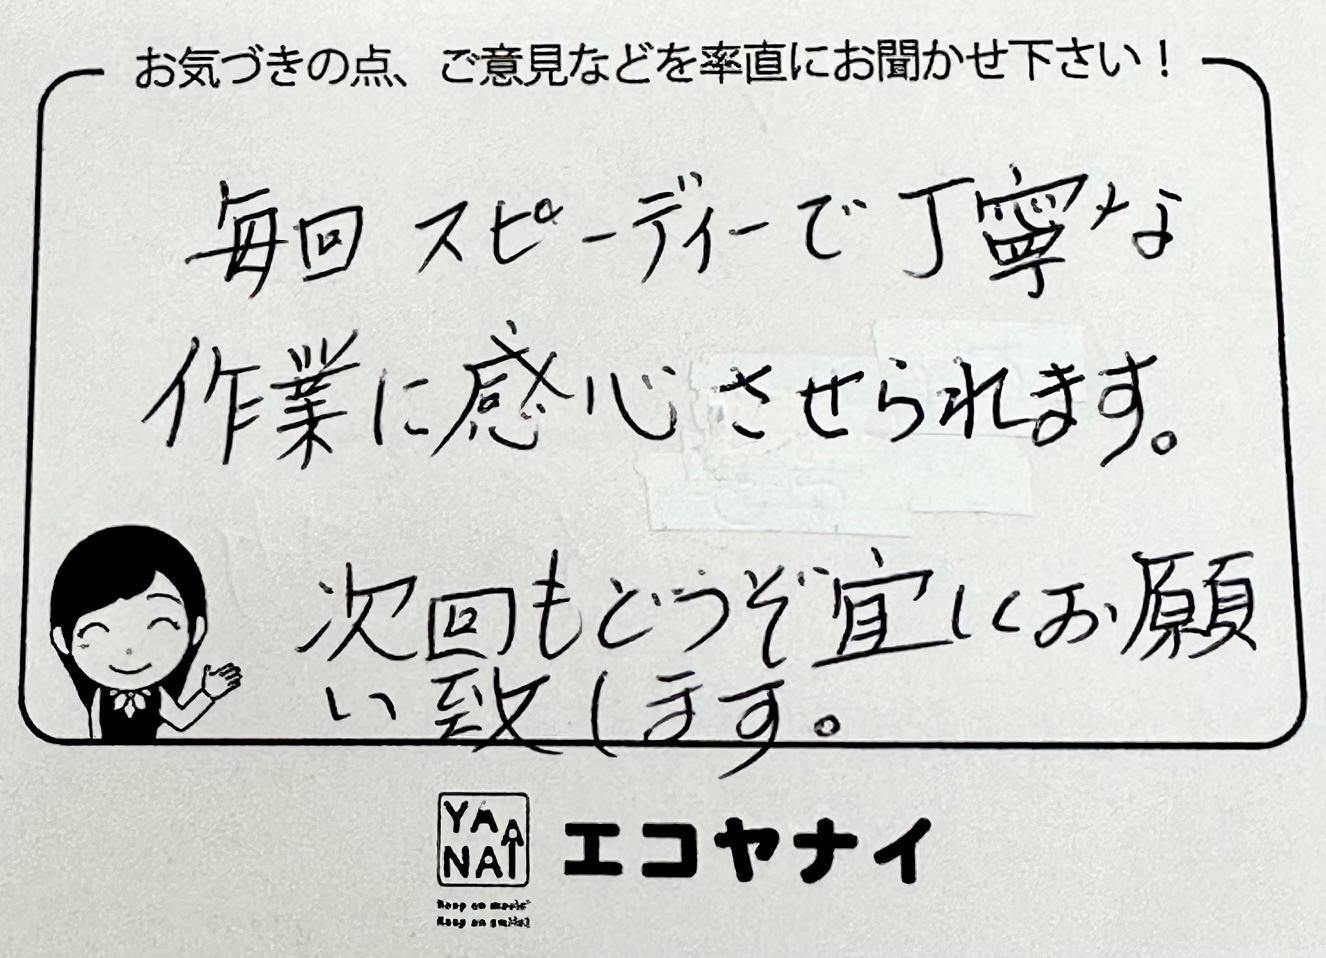 お気づきの点、ご意見などを率直にお聞かせ下さい！
毎回スピーディーで丁寧な
作業に感心させられます。
次回もどうぞ宜しくお願
い致します。
YANAI
エコヤナイ
Keep on movin'
Keep on smilin'